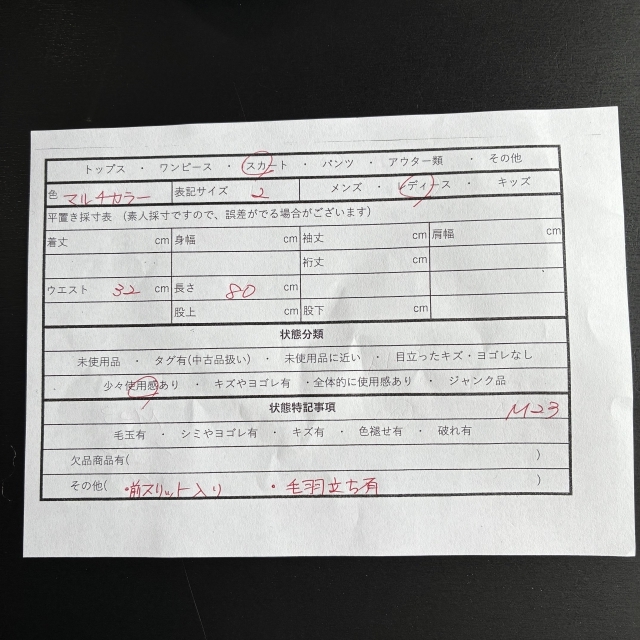 トップス ・ ワンピース ・ スカート ・ パンツ ・ アウター類 ・ その他
色 マルチカラー 表記サイズ 2 メンズ ・ レディース ・ キッズ
平置き採寸表 (素人採寸ですので、誤差がでる場合がございます)
着丈 cm 身幅 cm 袖丈 cm 肩幅 cm
裄丈 cm
ウエスト 32 cm 長さ 80 cm
股上 cm 股下 cm
状態分類
未使用品 ・ タグ有(中古品扱い) ・ 未使用品に近い ・ 目立ったキズ・ヨゴレなし
少々使用感あり ・ キズやヨゴレ有 ・全体的に使用感あり ・ ジャンク品
状態特記事項 M23
毛玉有 ・ シミやヨゴレ有 ・ キズ有 ・ 色褪せ有 ・ 破れ有
欠品商品有( )
その他( ・前スリット入り ・毛羽立ち有 )